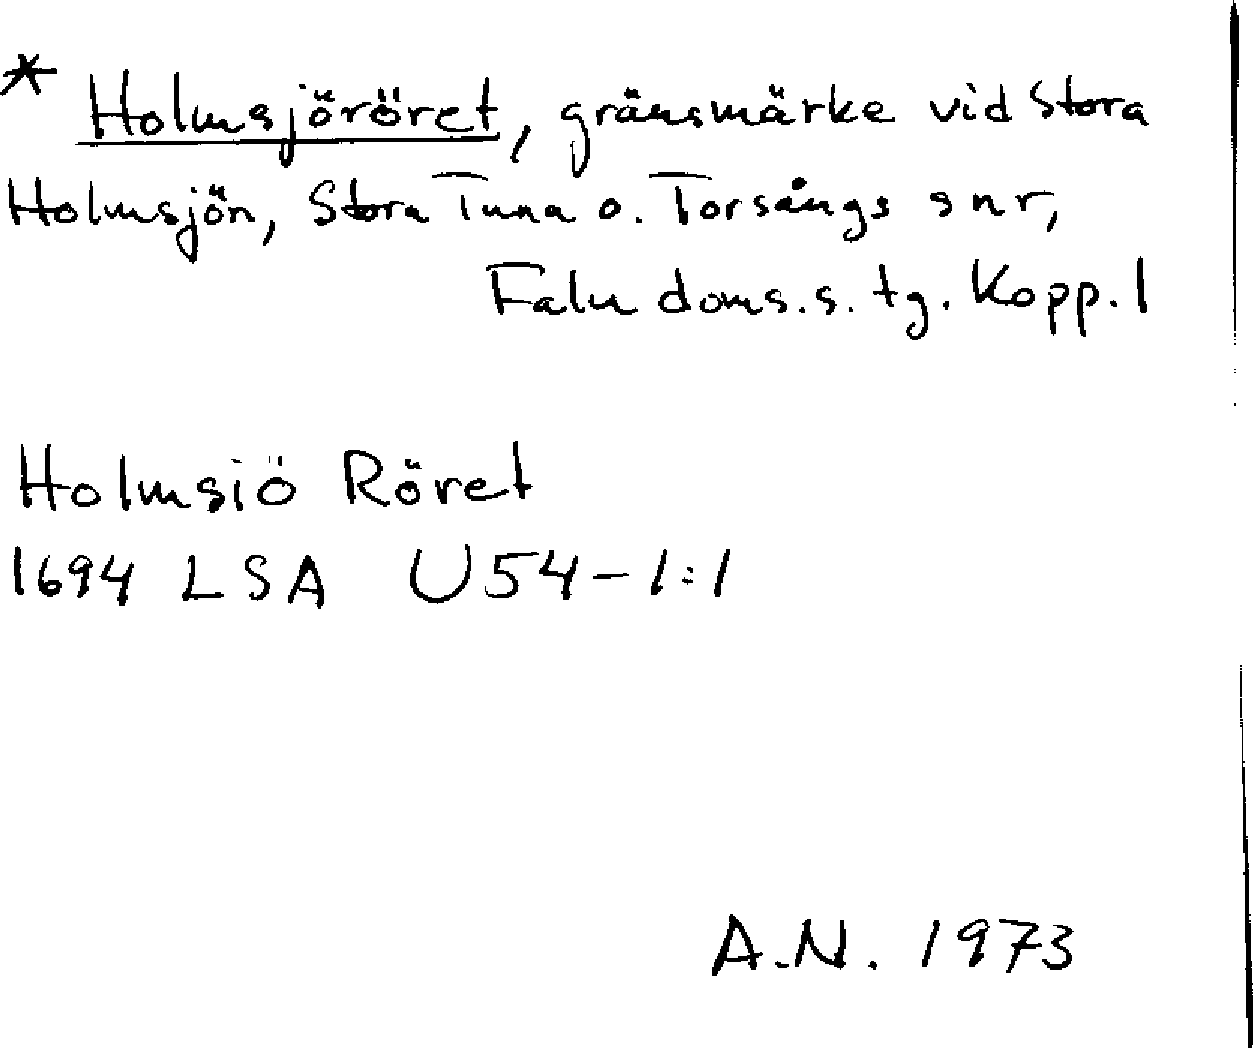 * Holmsjöröret, gränsmärke vid Stora
Holmsjön, Stora Tuna o. Torsångs snr,
Falu doms.s. tg. Kopp. l
Holmsiö Röret
1694 LSA U54-1:1
A.N. 1973